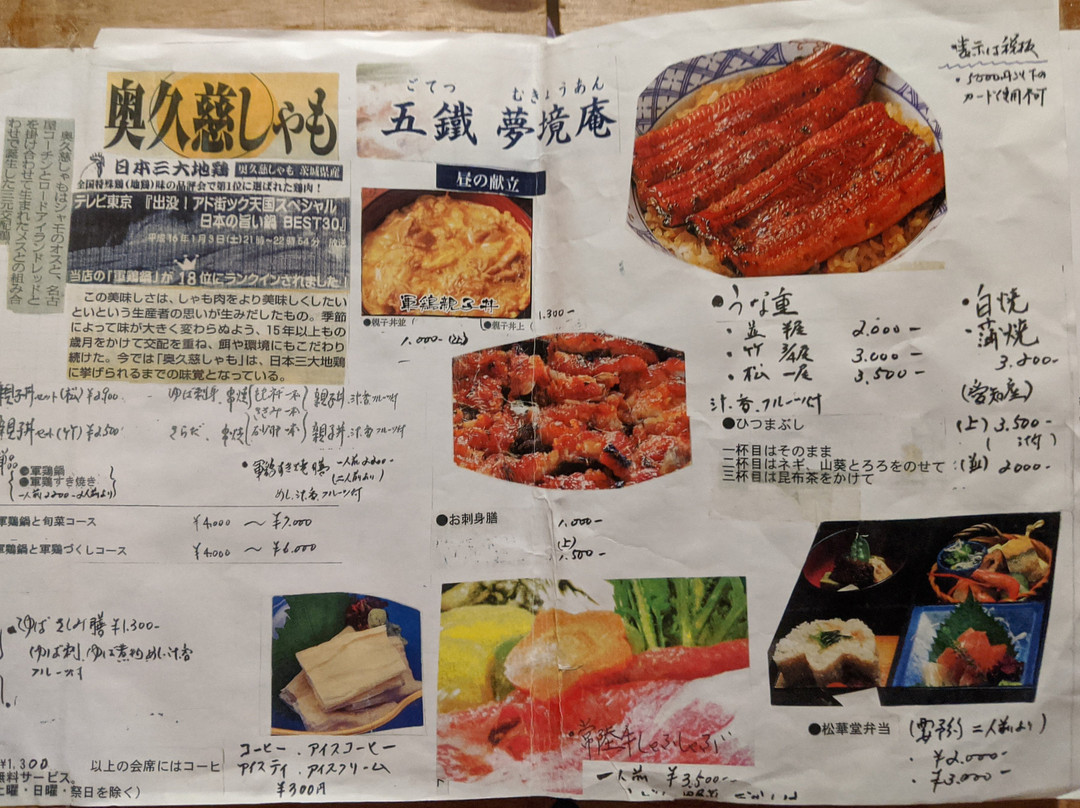 奥久慈しゃも
奥久慈しゃもはシャモのオスと、名古
屋コーチンとロードアイランドレッドと
を掛け合わせて生まれたメスとの組み合
わせで誕生した三元交配
日本三大地鶏 奥久慈しゃも 茨城県産
全国特殊鶏(地鶏)味の品評会で第1位に選ばれた鶏肉!
テレビ東京 『出没!アド街ック天国スペシャル
日本の旨い鍋 BEST30』
平成16年1月3日(土)21時~22時54分 放送
当店の「軍鶏鍋」が 18位にランクインされました!
この美味しさは、しゃも肉をより美味しくしたい
といという生産者の思いが生みだしたもの。季節
によって味が大きく変わらぬよう、15年以上もの
歳月をかけて交配を重ね、餌や環境にもこだわり
続けた。今では「奥久慈しゃも」は、日本三大地鶏
に挙げられるまでの味覚となっている。
親子丼セット(松)¥2900 ゆば刺身 串焼 親子丼.汁香フルーツ付
親子丼セット(竹)¥2500 さらだ.串焼 親子丼.汁香フルーツ付
●軍鶏鍋
●軍鶏すき焼き
一人前2200-2人前より
・軍鶏すき焼膳 一人前2200-
(二人前より)
めし.汁香フルーツ付
軍鶏鍋と旬菜コース ¥4,000 ~ ¥7.000
軍鶏鍋と軍鶏づくしコース ¥4.000 ~ ¥6.000
ゆばさしみ膳 ¥1.300-
(ゆば刺 ゆば煮物 めし.汁香
フルーツ付
¥1.300 以上の会席にはコーヒ
無料サービス。
土曜・日曜・祭日を除く)
コーヒー.アイスコーヒー
アイスティ.アイスクリーム
¥300円
ごてつ むきょうあん
五鐵 夢境庵
昼の献立
軍鶏親子丼
●親子丼並( ●親子丼上( 1.300-
1.000-(上)
●お刺身膳 1.000-
(上)
1.500-
・常陸牛しゃぶしゃぶ
一人前 ¥3,500-
表示は税抜
・5000円以下の
カード使用不可
・うな重
・並 半尾 2.000-
・竹 3.000-
・松 一尾 3,500-
汁.香.フルーツ付
・白焼
蒲焼
3.200-
(愛知産)
●ひつまぶし (上)3.500-
(汁付)
一杯目はそのまま
二杯目はネギ、山葵とろろをのせて (並)2000-
三杯目は昆布茶をかけて
●松華堂弁当 (要予約 二人前より)
・¥2.000-
・¥3.000-